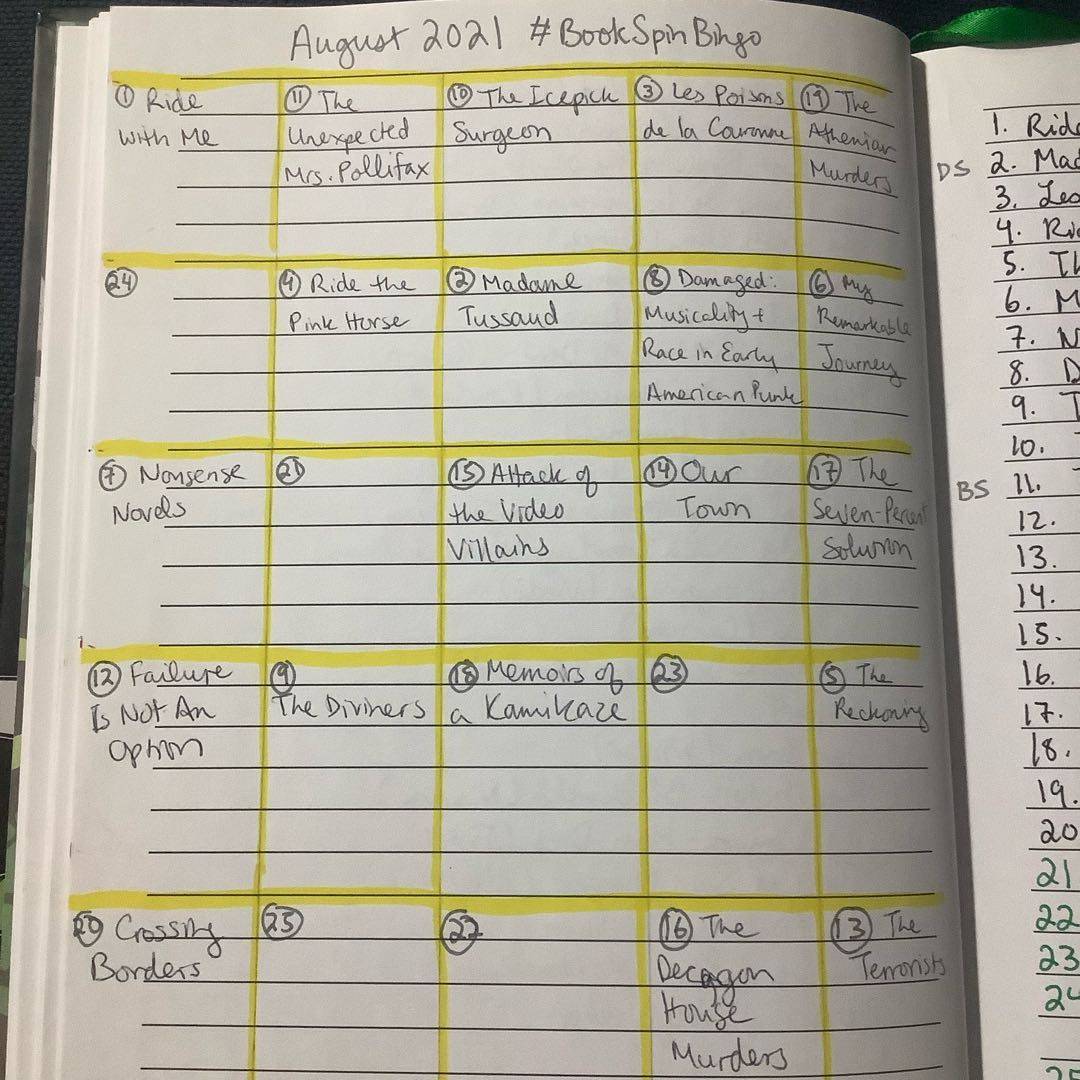 August 2021 #BookSpinBingo
① Ride
With Me
⑪ The
Unexpected
Mrs. Pollifax
⑩ The Icepick
Surgeon
③ Les Poisons
de la Couronne
⑲ The
Athenian
Murders
㉔
④ Ride the
Pink Horse
② Madame
Tussaud
⑧ Damaged:
Musicality +
Race in Early
American Punk
⑥ My
Remarkable
Journey
⑦ Nonsense
Novels
㉑
⑮ Attack of
the Video
Villains
⑭ Our
Town
⑰ The
Seven-Percent
Solution
⑫ Failure
Is Not An
Option
⑨
The Diviners
⑱ Memoirs of
a Kamikaze
㉓
⑤ The
Reckoning
⑳ Crossing
Borders
㉕
㉒
⑯ The
Decagon
House
Murders
⑬ The
Terrorists
1. Ride
DS 2. Mad
3. Les
4. Rid
5. Th
6. M
7. N
8. D
9. T
10.
BS 11.
12.
13.
14.
15.
16.
17.
18.
19.
20
21
22
23
24
25